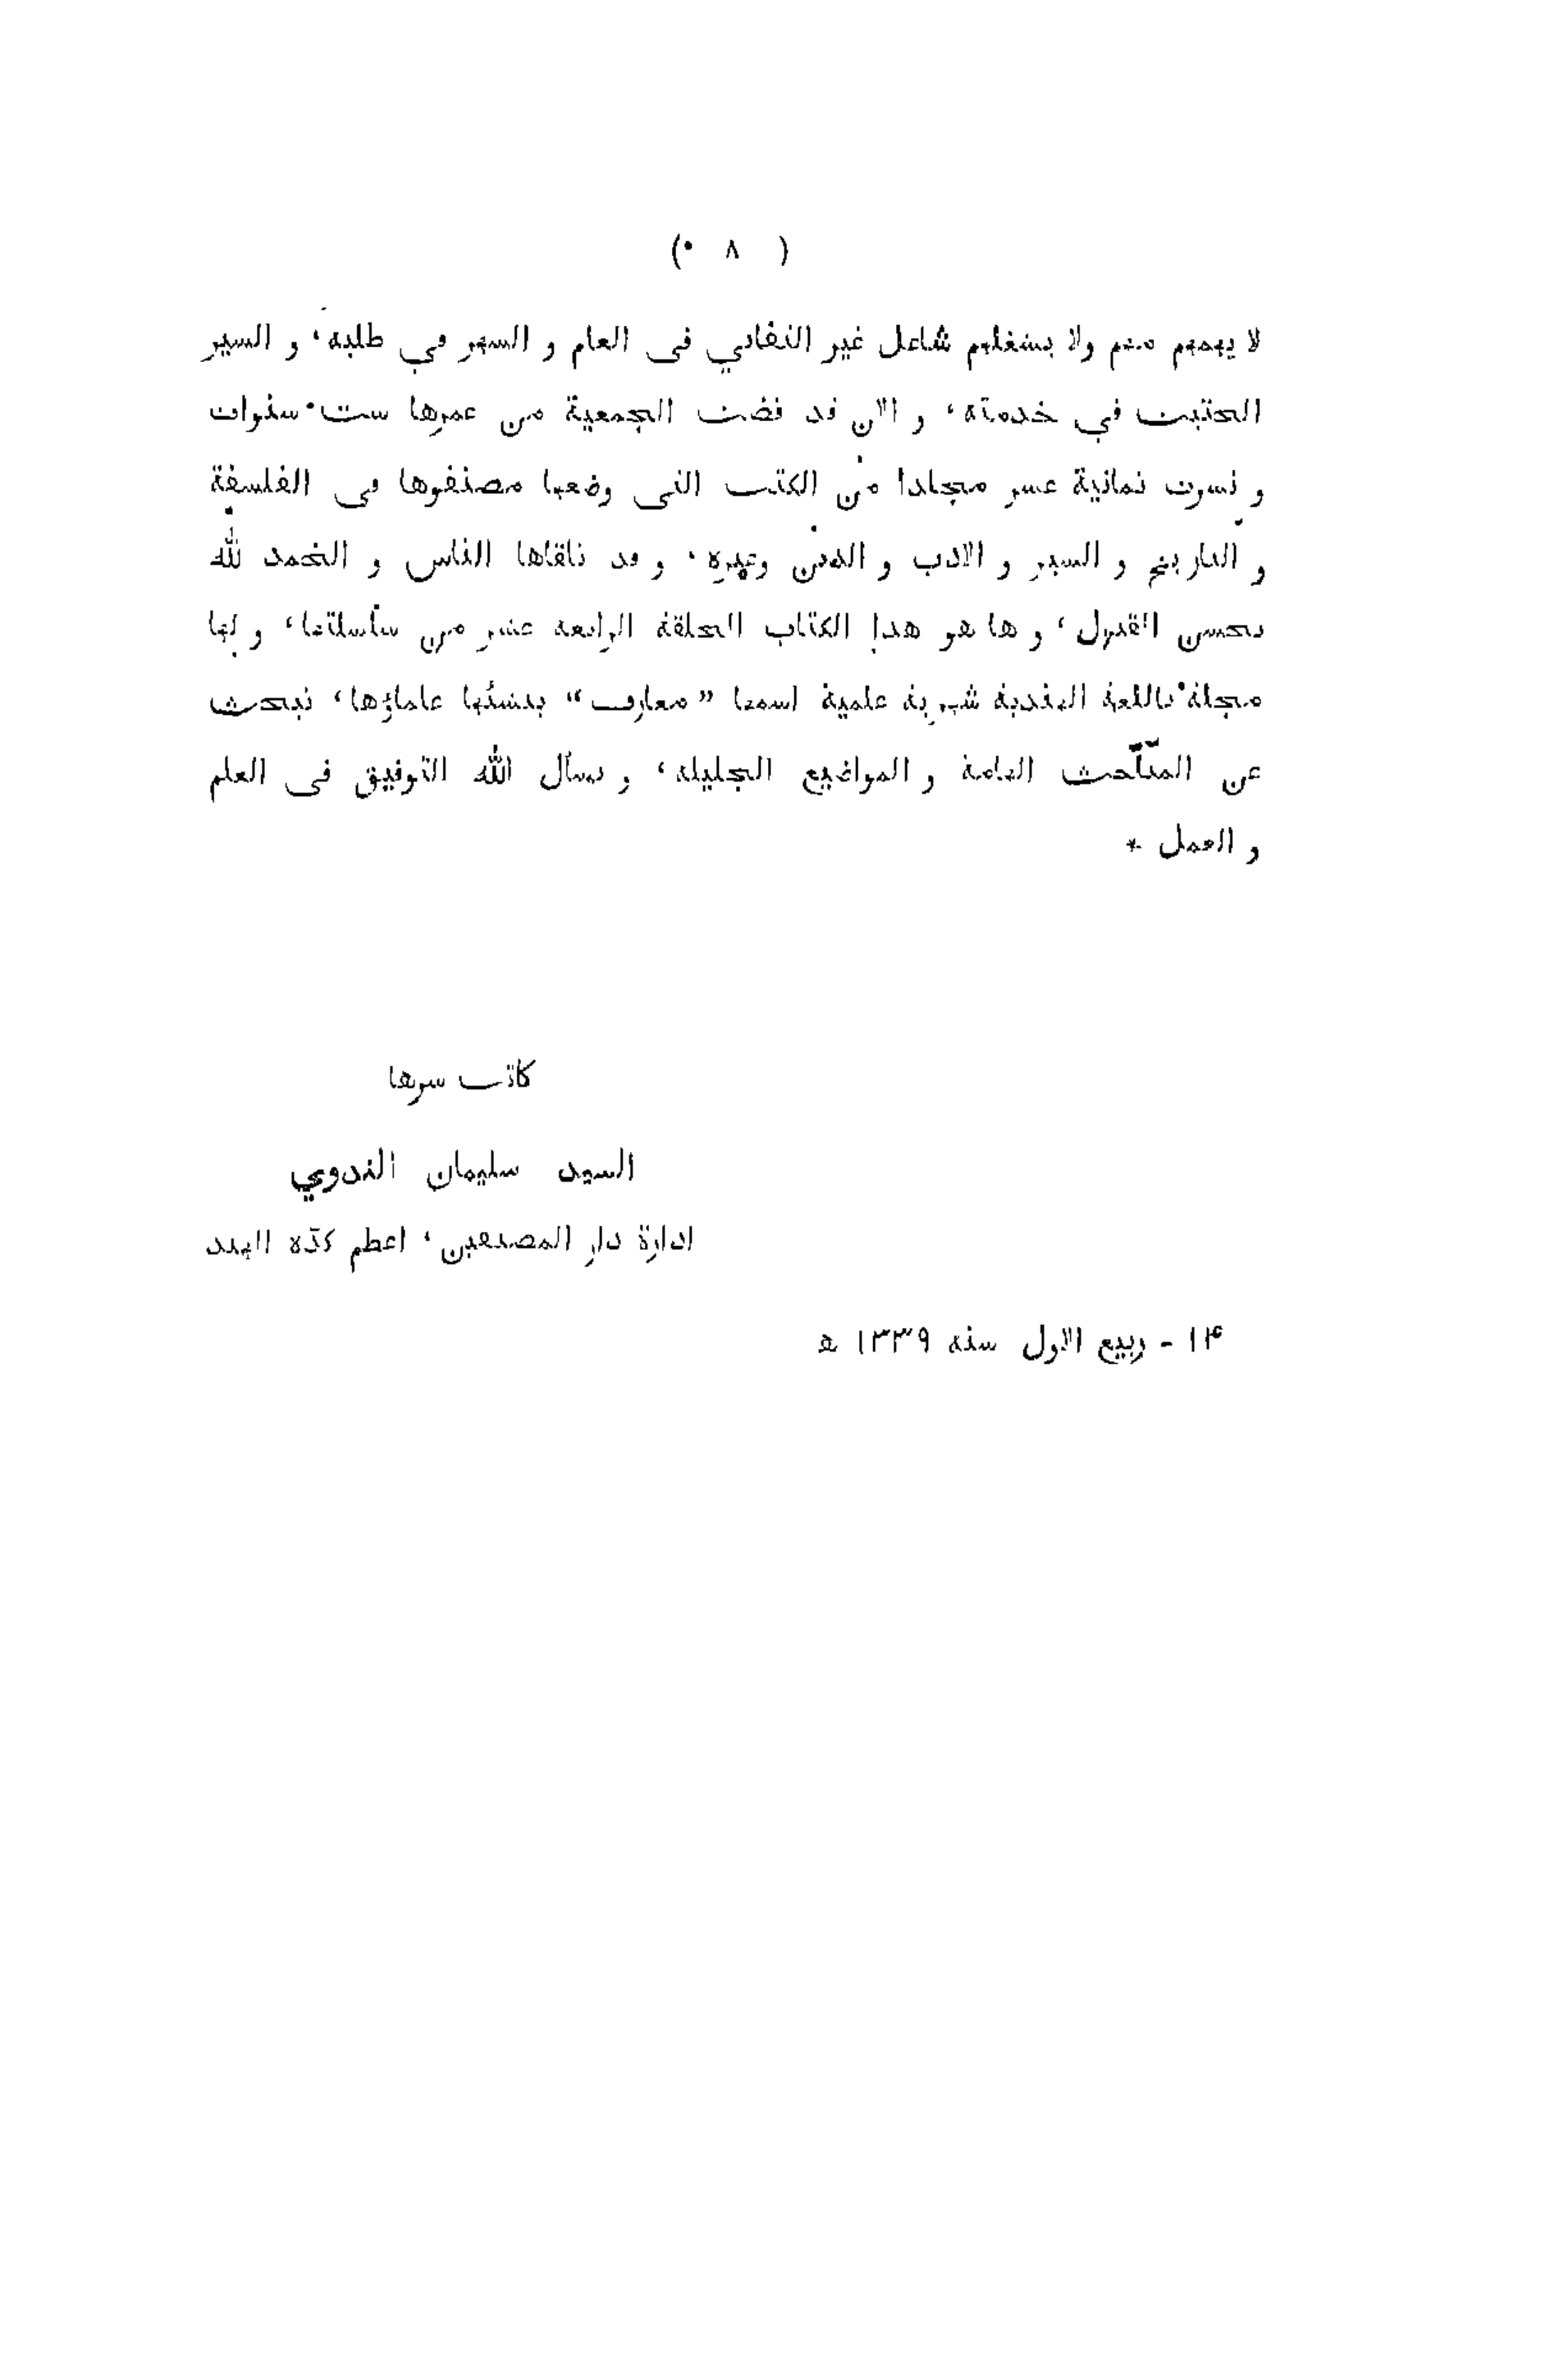 ( ٨ )
لا يهمهم مهم ولا يشغلهم شاغل غير التفاني فى العلم و السهر في طلبه، و السير
الحثيث في خدمته، و الآن قد قضت الجمعية من عمرها ست سنوات
و نشرت ثمانية عشر مجلدا من الكتب التى وضعها مصنفوها فى الفلسفة
و التاريخ و السير و الادب و الفنون وغيره، و قد تلقاها الناس و الحمد لله
بحسن القبول، و ها هو هذا الكتاب الحلقة الرابعة عشر من سلسلتها، و لها
مجلة باللغة الهندية شهرية علمية اسمها ”معارف“ ينشئها علماؤها، تبحث
عن المباحث الهامة و المواضيع الجليلة، و نسأل الله التوفيق فى العلم
و العمل *
كاتب سرها
السيد سليمان الندوي
ادارة دار المصنفين، اعظم كده الهند
١۴ - ربيع الاول سنه ١٣٣٩ ه